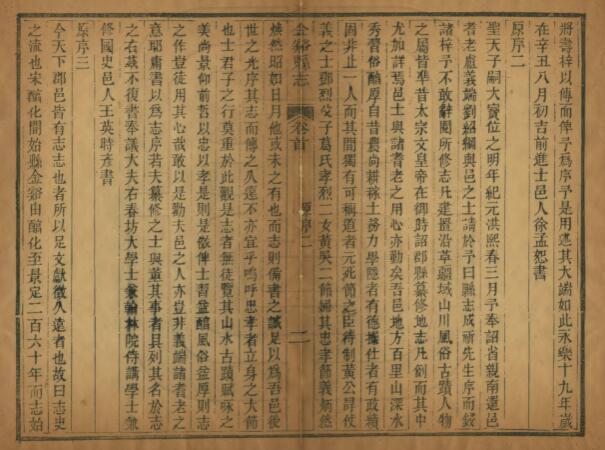 將壽梓以傳而俾予為序予是用述其大端如此永樂十九年歲
在辛丑八月初吉前進士邑人徐孟恕書
原序二
聖天子嗣大寶位之明年紀元洪熙春三月予奉詔省親南還邑
者老盧義端劉紹綱與邑之士請於予曰縣志成祈先生序而鋟
諸梓予不敢辭閱所修志凡建置沿革疆域山川風俗古蹟人物
之屬皆準昔太宗文皇帝在御時詔郡縣纂修地志凡例而其中
尤加詳焉邑士與諸耆老之用心亦勤矣吾邑地方百里山深水
秀習俗醇厚自昔農尚耕稼士務力學隱者有德擢仕者有政績
固非止一人而其間獨有可稱道者元死節之臣待制黃公殉
義之士鄧烈女子葛氏孝烈二女黃吳二節婦其忠孝節義炳然
煥然昭如日月他或未之有也而志則備書之誠足以為吾邑後
世之光序其志而傳之久遠不亦宜乎嗚呼忠孝者立身之大節
也士君子之行莫重於此觀是志者無徒覽其山水古蹟賦咏之
美尚景仰前哲以忠以孝是則是傚俾士習益醇風俗益厚則志
之作豈徒用其心哉敢以是勸夫邑之人亦豈非義端諸耆老之
意耶庸書以為志序若夫纂修之士與董其事者具列其名於志
之右茲不復書奉議大夫右春坊大學士兼翰林院侍講學士兼
修國史邑人王英時彥書
原序三
今天下郡邑皆有志志也者所以足文獻徵久遠者也故曰志史
之流也宋醕化間始縣金谿由醕化至景定二百六十年而志始
金谿縣志
卷首
原序二
二